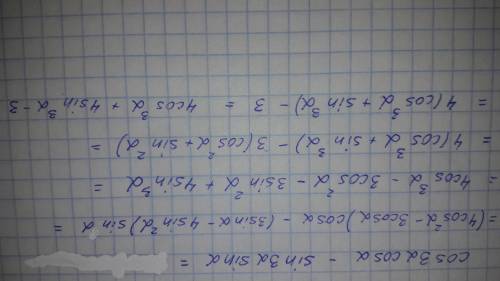 cos 3α cos α − sin 3α sin α =
= (4cos²α − 3cosα) cosα − (3sinα − 4sin²α) sin α =
= 4cos³α − 3cos²α − 3sin²α + 4sin³α =
= 4(cos³α + sin³α) − 3(cos²α + sin²α) =
= 4(cos³α + sin³α) − 3 = 4cos³α + 4sin³α − 3